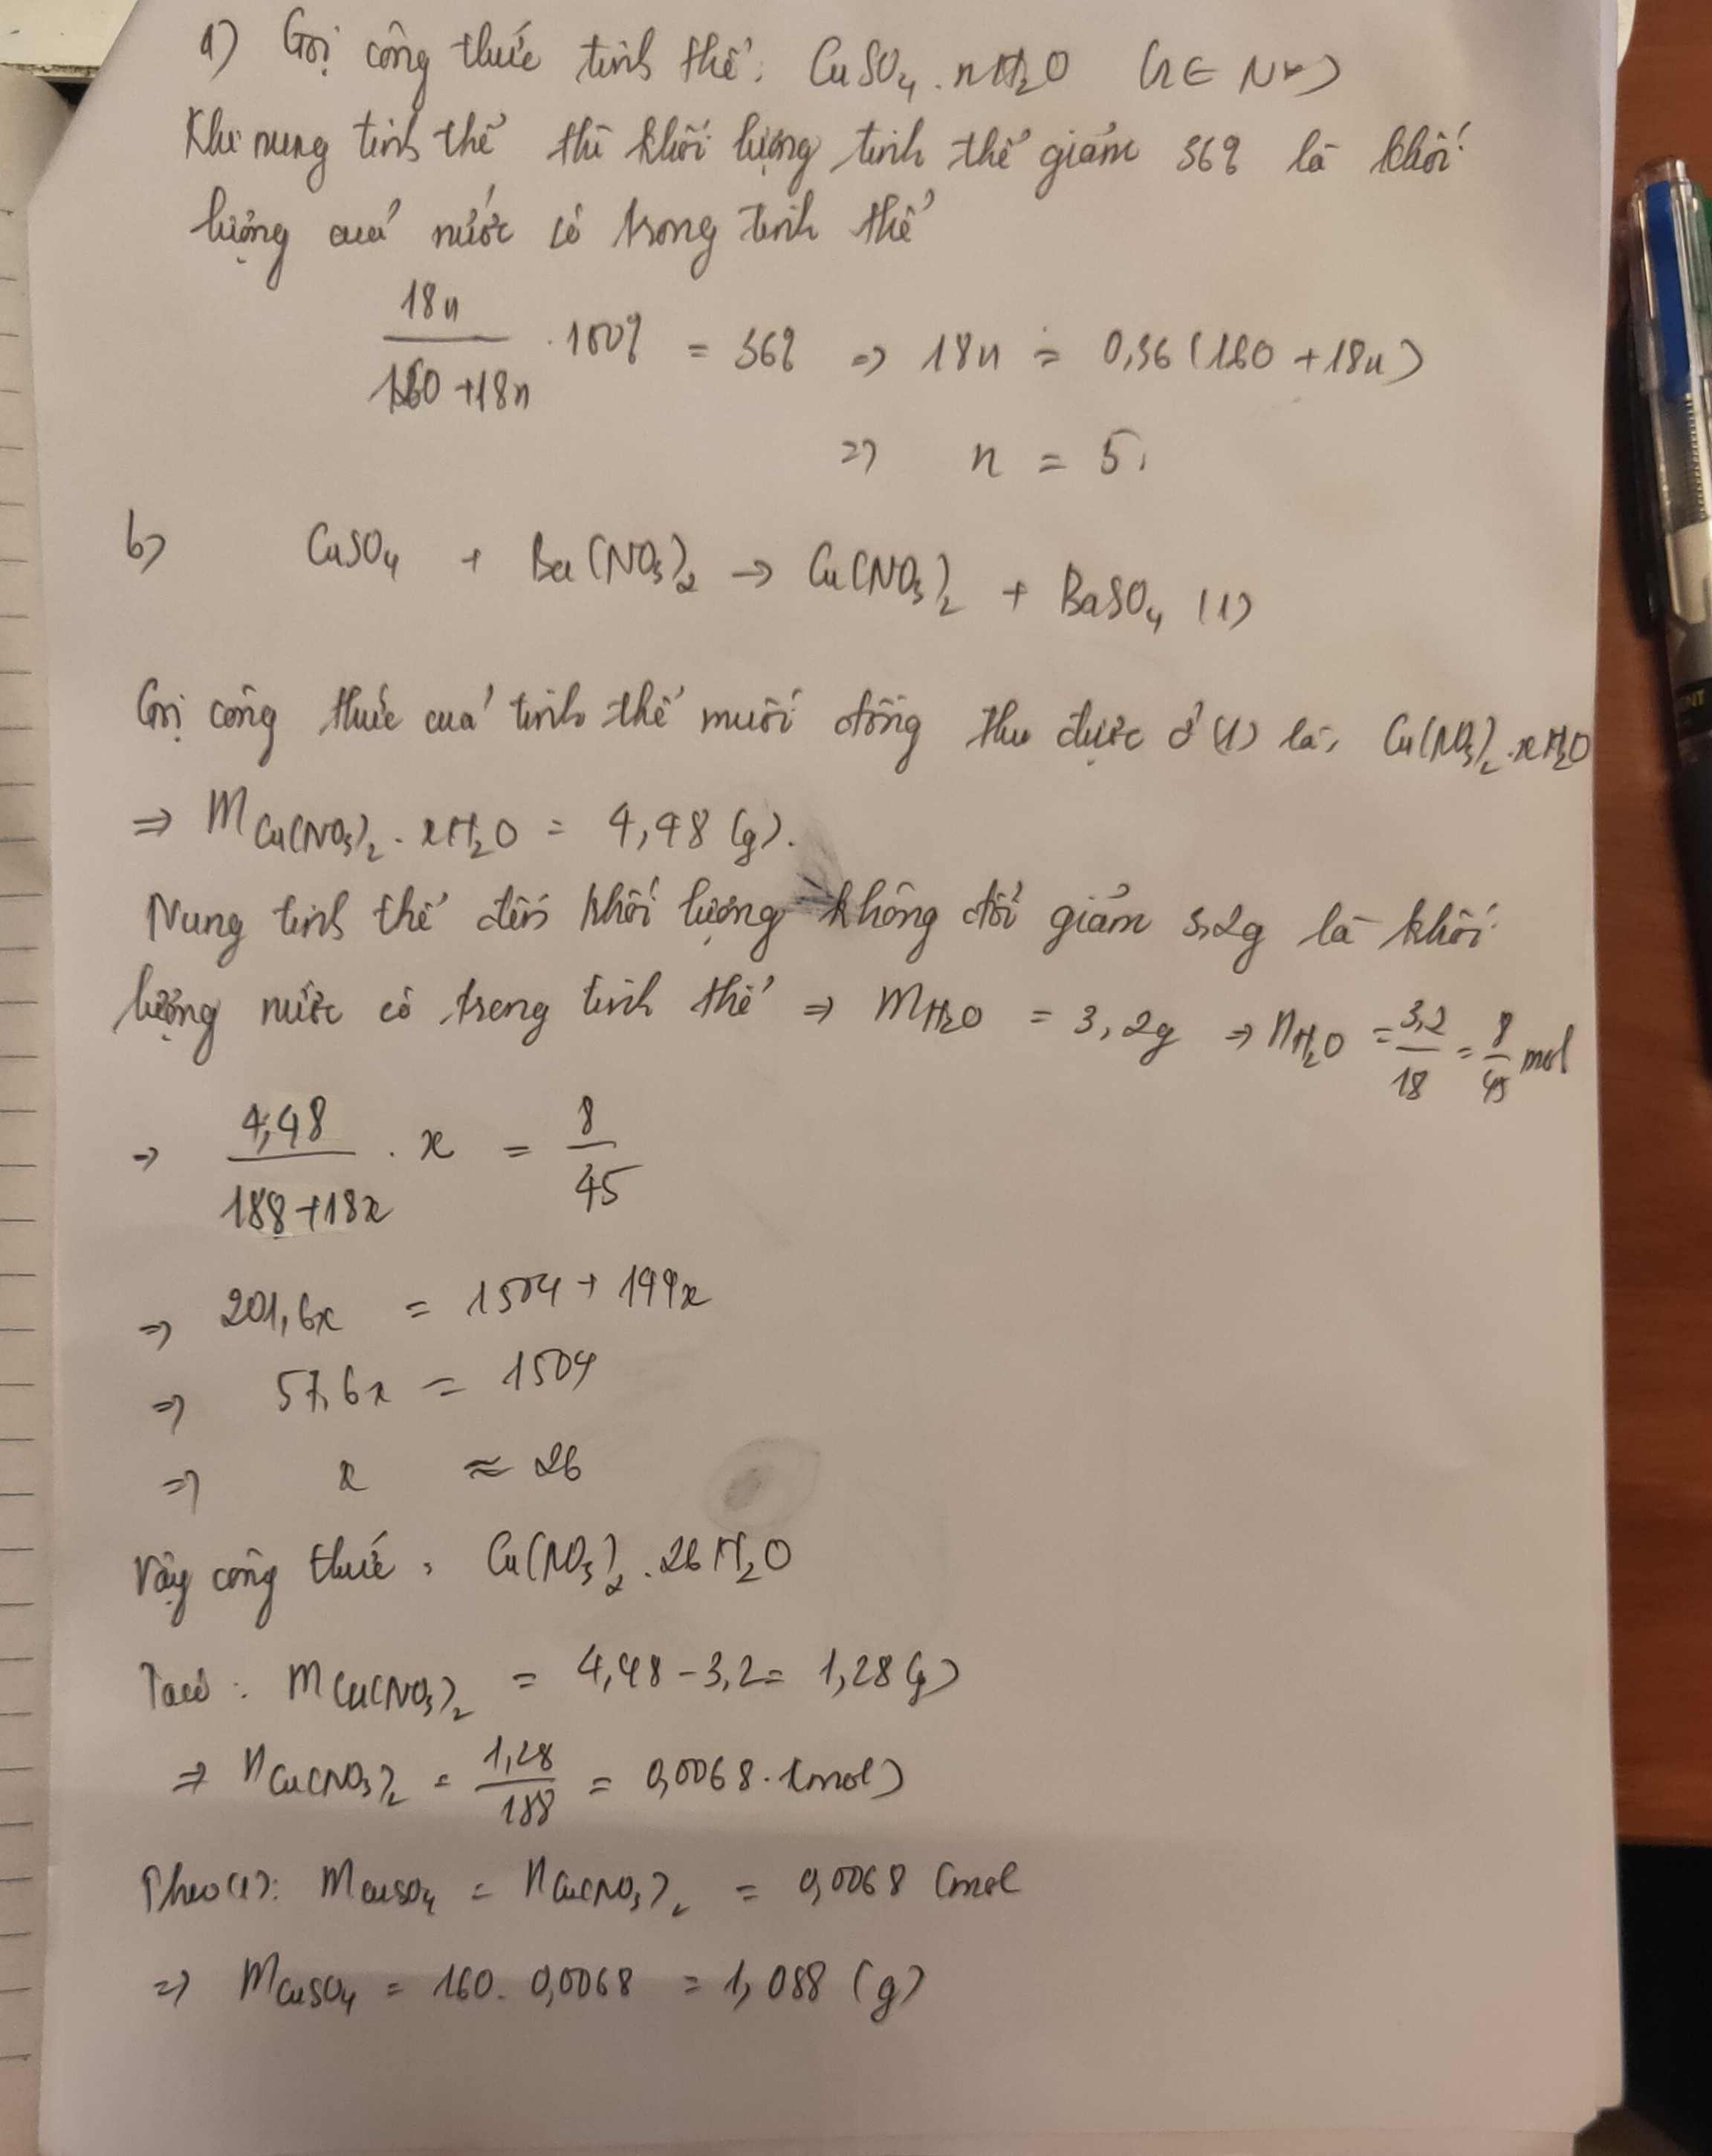 a) Gọi công thức tinh thể: CuSO4.nH2O (n ∈ N*)
Khi nung tinh thể thì khối lượng tinh thể giảm 36% là khối
lượng cuả nước có trong tinh thể
18n / (160 + 18n) . 100% = 36% => 18n = 0,36 (160 + 18n)
=> n = 5.
b) CuSO4 + Ba(NO3)2 → Cu(NO3)2 + BaSO4 (1)
Gọi công thức cuả tinh thể muối đồng thu được ở (1) là: Cu(NO3)2.xH2O
=> mCu(NO3)2.xH2O = 4,48 (g).
Nung tinh thể đến khối lượng không đổi giảm 3,2g là khối
lượng nước có trong tinh thể => mH2O = 3,2g => nH2O = 3,2/18 = 8/45 mol
=> 4,48 / (188+18x) . x = 8/45
=> 201,6x = 1504 + 144x
=> 57,6x = 1504
=> x ≈ 26
Vậy công thức: Cu(NO3)2.26H2O
Ta có: mCu(NO3)2 = 4,48 - 3,2 = 1,28 (g)
=> nCu(NO3)2 = 1,28/188 = 0,0068 . (mol)
Theo (1): mCuSO4 = nCu(NO3)2 = 0,0068 (mol
=> mCuSO4 = 160. 0,0068 = 1,088 (g)